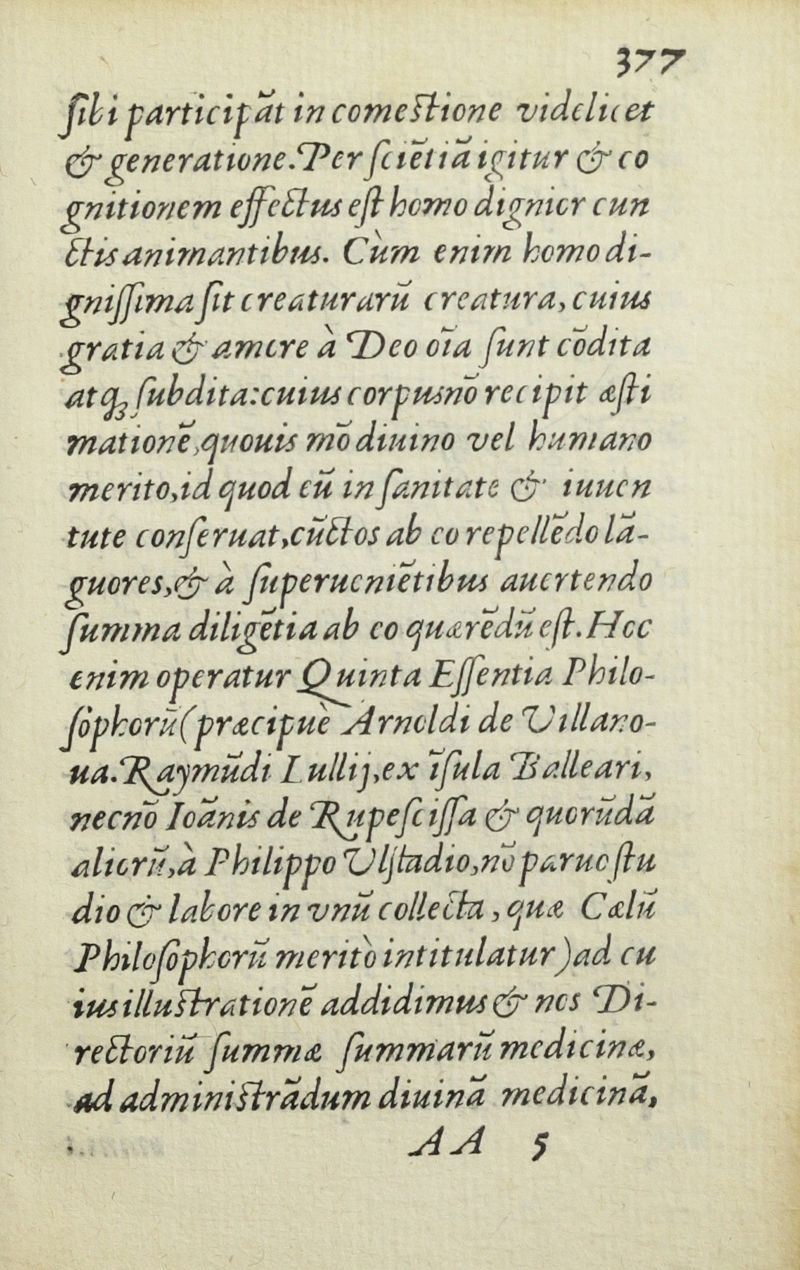 377
ſibi participāt in comeſtione videlicet
& generatione. Per ſciētiā igitur & co
gnitionem effectus eſt homo dignior cun
ctis animantibus. Cùm enim homo di-
gniſſima ſit creaturarū creatura, cuius
gratia & amore à Deo oīa ſunt cōdita
atq; ſubdita: cuius corpus nō recipit æſti
mationē, quouis mō diuino vel humano
merito, id quod eū in ſanitate & iuuen
tute conſeruat, cūctos ab eo repellēdo lā-
guores, & à ſuperueniētibus auertendo
ſumma diligētia ab eo quærēdū eſt. Hoc
enim operatur Quinta Eſſentia Philo-
ſophorū (præcipuè Arnoldi de Villano-
ua. Raymūdi Lullij, ex īſula Balleari,
necnō Ioānis de Rupeſciſſa & quorūdā
aliorū, à Philippo Vlſtadio, nō paruo ſtu
dio & labore in vnū collecta, quæ Cælū
Philoſophorū meritò intitulatur) ad cu
ius illuſtrationē addidimus & nos Di-
rectoriū ſummæ ſummarū medicinæ,
ad adminiſtrādum diuinā medicinā,
AA 5